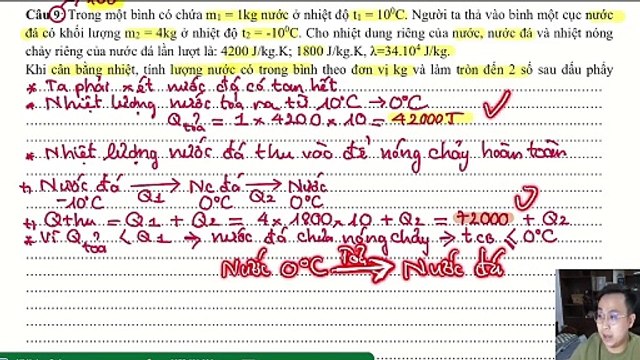 Câu 9: Trong một bình có chứa m₁ = 1kg nước ở nhiệt độ t₁ = 10⁰C. Người ta thả vào bình một cục nước
đá có khối lượng m₂ = 4kg ở nhiệt độ t₂ = -10⁰C. Cho nhiệt dung riêng của nước, nước đá và nhiệt nóng
chảy riêng của nước đá lần lượt là: 4200 J/kg.K; 1800 J/kg.K, λ=34.10⁴ J/kg.
Khi cân bằng nhiệt, tính lượng nước có trong bình theo đơn vị kg và làm tròn đến 2 số sau dấu phẩy
* Ta phải xét nước đá có tan hết
* Nhiệt lượng nước toả ra từ 10°C → 0°C
Q toả = 1 × 4200 × 10 = 42000J
* Nhiệt lượng nước đá thu vào để nóng chảy hoàn toàn
+) Nước đá → Nc đá → Nước
-10°C Q1 0°C Q2 0°C
+) Qthu = Q1 + Q2 = 4×1800×10 + Q2 = 72000 + Q2
* Vì Q toả < Q1 → nước đá chưa nóng chảy → t.CB ≤ 0°C
Nước 0°C Toả → Nước đá